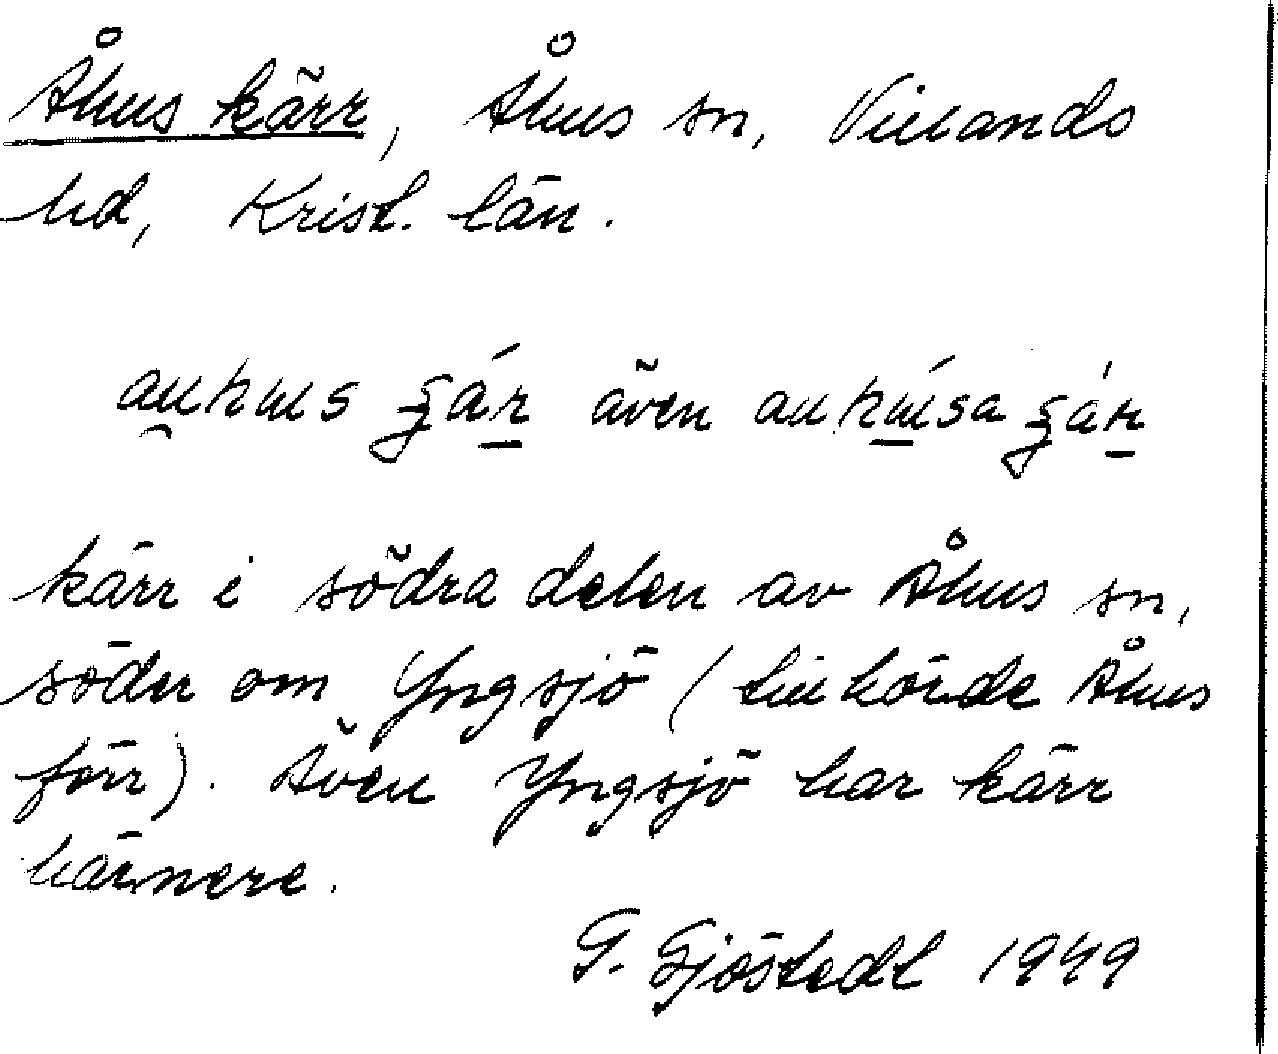 Åhus kärr, Åhus sn, Villands
hd, Krist. län.
även
kärr i södra delen av Åhus sn,
söder om Yngsjö (tillhörde Åhus
förr). Även Yngsjö har kärr
härnere.
G. Sjöstedt 1949